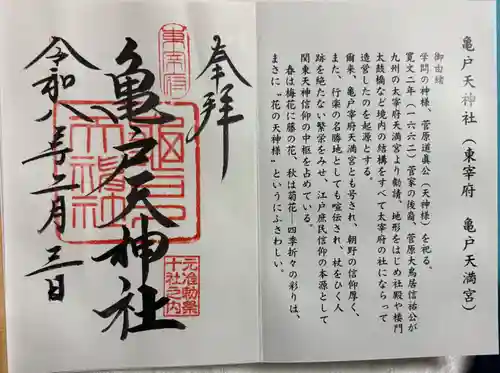 亀戸天神社(東宰府 亀戸天満宮)
御由緒
学問の神様、菅原道真公(天神様)を祀る。
寛文二年(一六六二)菅家の後裔、菅原大鳥居信祐公が
九州の太宰府天満宮より勧請、地形をはじめ社殿や楼門
太鼓橋など境内の結構をすべて太宰府の社にならって
造営したのを起源とする。
爾来、亀戸宰府天満宮とも号され、朝野の信仰厚く、
また、行楽の名勝地としても喧伝され、杖をひく人
跡を絶たない繁栄をみせ、江戸庶民信仰の本源として
関東天神信仰の中枢を占めている。
春は梅花に藤の花、秋は菊花―四季折々の彩りは、
まさに"花の天神様"というにふさわしい。
奉拝
東宰府
亀戸天神社
元准勅祭
十社之内
令和八年二月三日